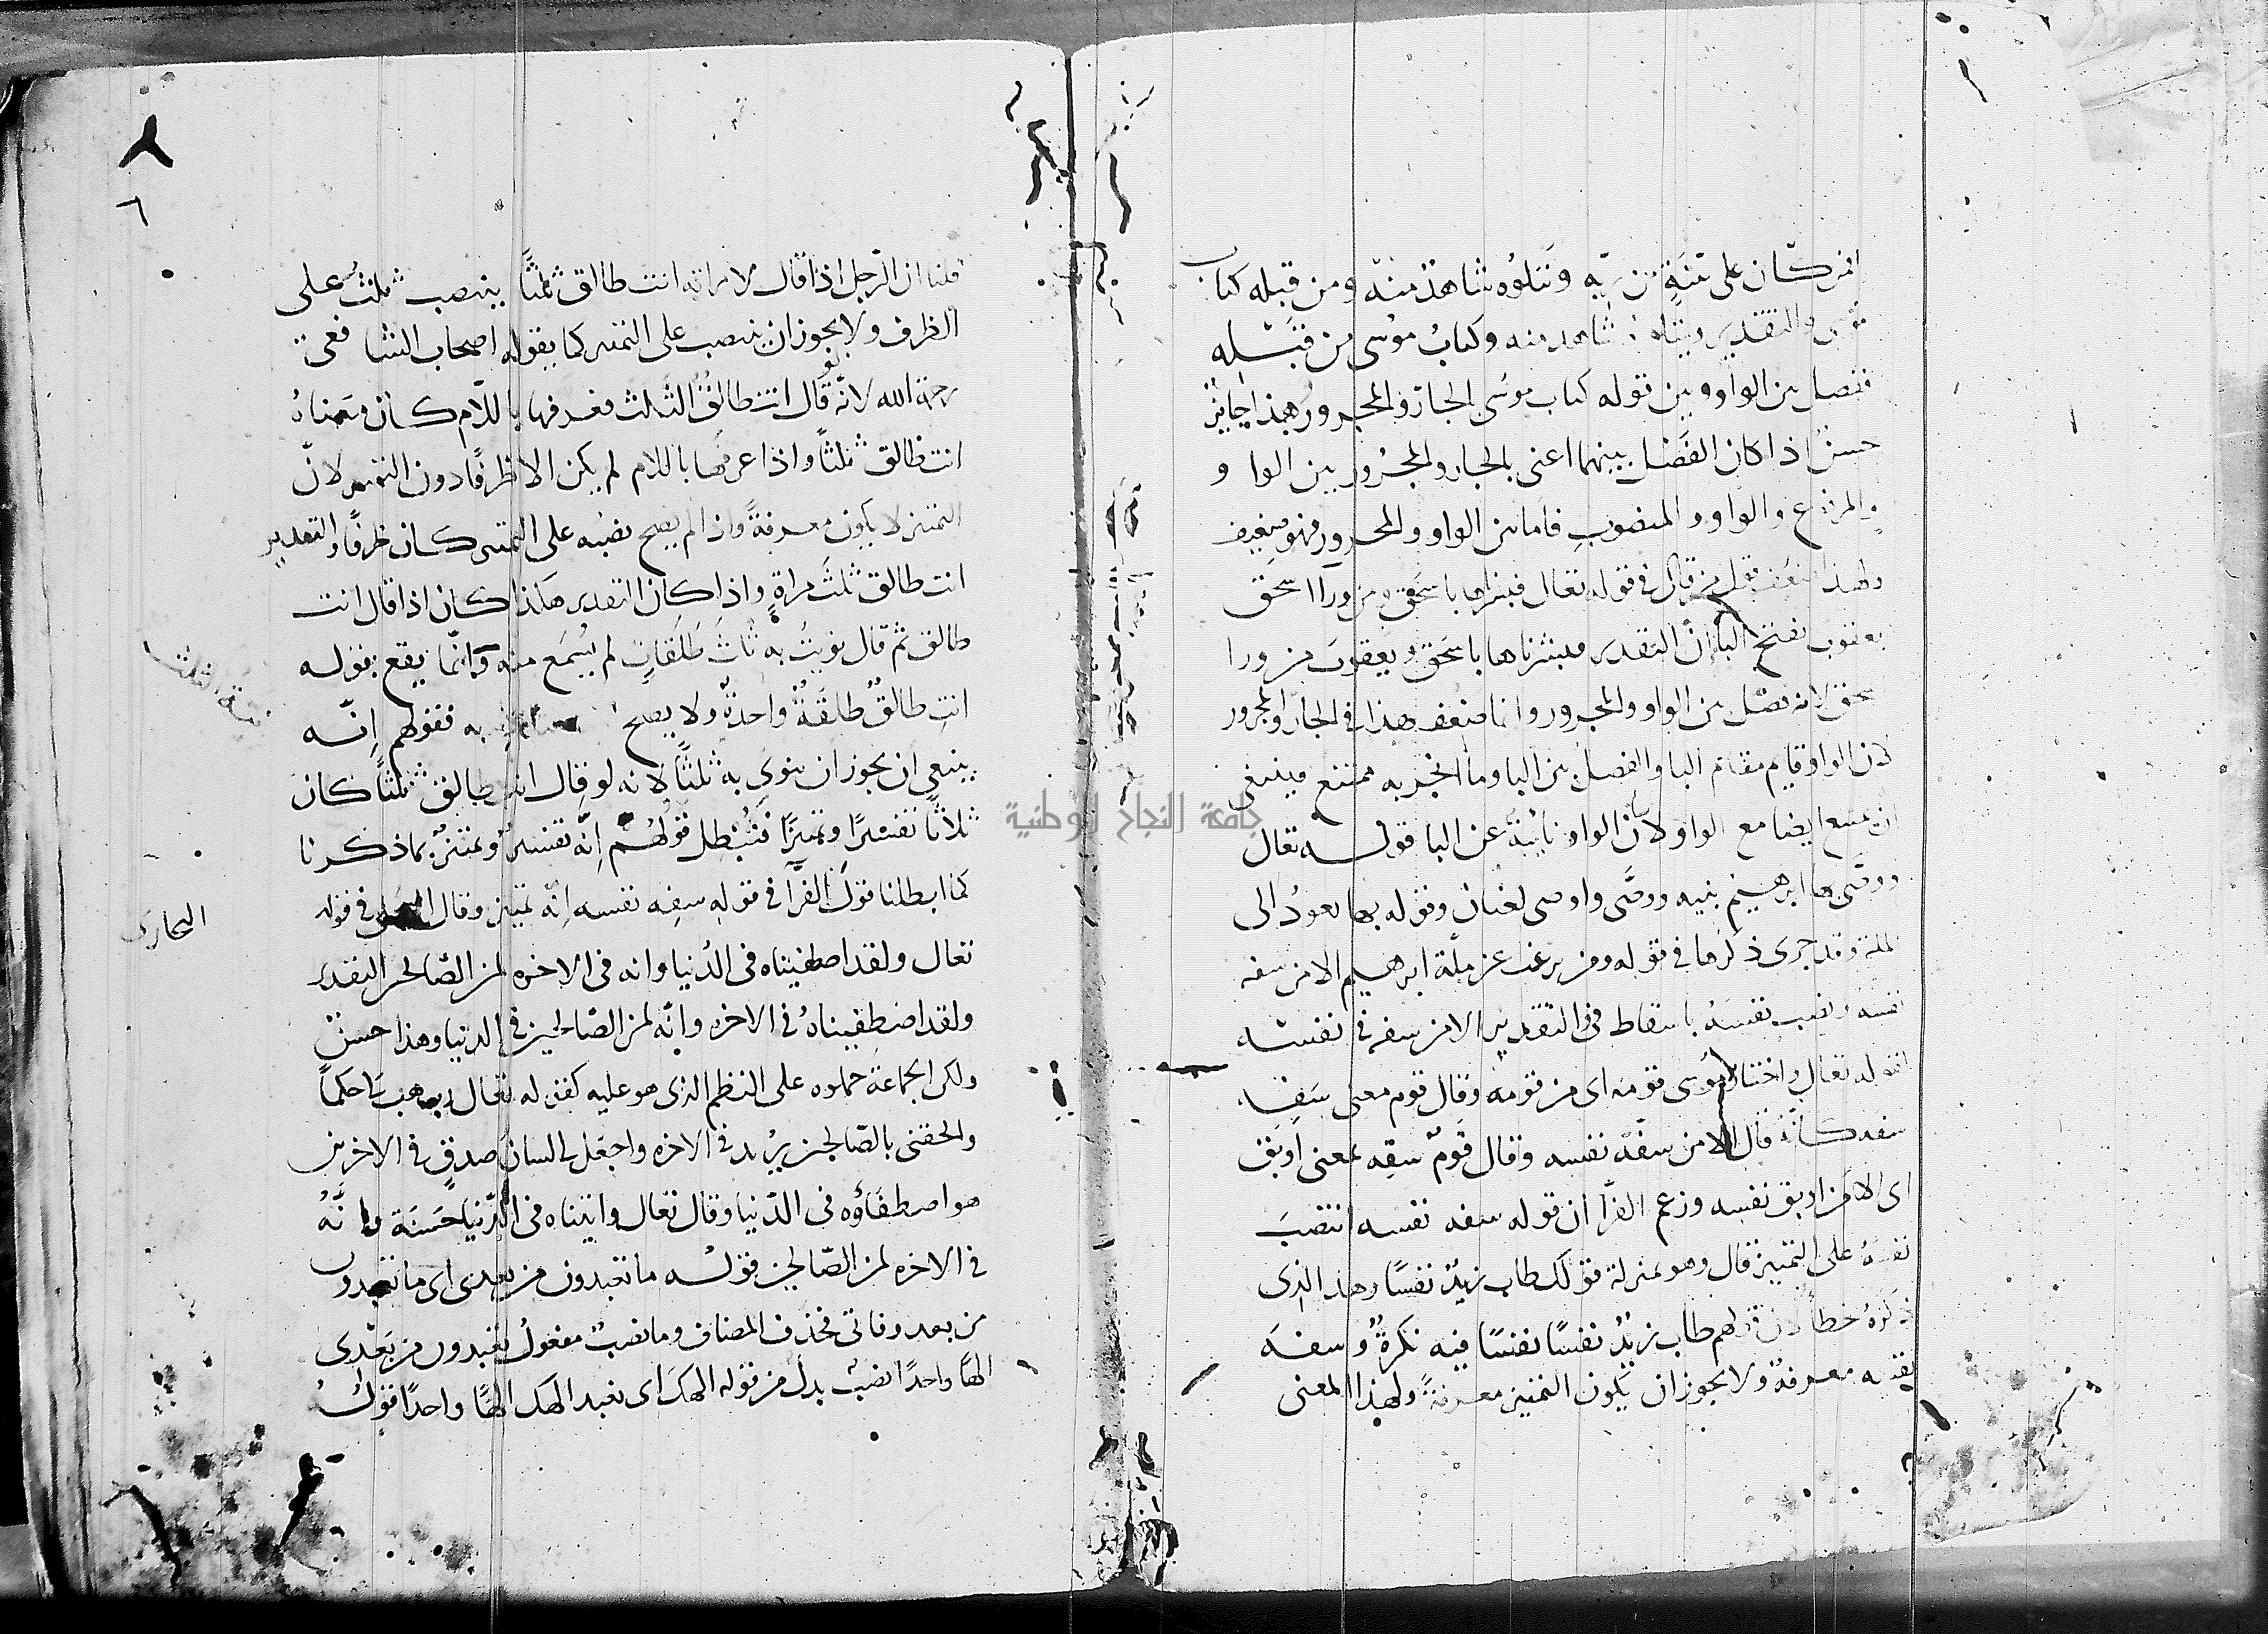 افمن كان على بينة من ربه ويتلوه شاهد منه ومن قبله كتاب
موسى والتقدير ويتلوه شاهد منه وكتابُ موسى من قبله
ففصل بين الواو وبين قوله كتاب موسى بالجار والمجرور وهذا جايز
حسن اذا كان الفصل بينهما اعنى بالجار والمجرور بين الواو و
والمرفوع والواو والمنصوب فاما بين الواو والمجرور فهو ضعيف
ولهذا ضعف قول من قال فى قوله تعالى فبشرناها باسحق ومن ورآ اسحق
يعقوب بفتح البا إنّ التقدير فبشرناها باسحق ويعقوب من ورا
اسحق لانه فصل بين الواو والمجرور وانما ضعف هذا فى الجار والمجرور
لان الواو قايم مقام البا والفصل بين البا وما انجر به ممتنع فينبغى
ان يمتنع ايضا مع الواو لان الواو نائبة عن البا قوله تعالى
ووصّى بها ابرهيم بنيه ووصَّى واوصى لغتان وقوله بها يعودُ الى
الملة وقد جرى ذكرها فى قوله ومن يرغب عن ملّة ابرهيم الا من سفه
نفسه ونصب نفسَهُ باسقاط فى والتقدير الا من سفه فى نفسه
كقوله تعالى واختار موسى قومه اى من قومه وقال قوم معنى سَفِه
سفه كانّه قال الا من سفّه نفسه وقال قومٌ سفِه بمعنى اوبق
اى الا من اوبق نفسه وزعم الفرّا ان قوله سفه نفسه انتصبَ
نفسَهُ على التمييز قال وهو بمنزلة قولك طاب زيدٌ نفسًا وهذا الذى
ذكرَهُ خطا لان قولهم طاب زيدٌ نفسًا نفسًا فيه نكرةٌ وسفه
نفسه معرفة ولا يجوز ان يكون التمييز معرفةً ولهذا المعنى
قلنا ان الرّجل اذا قال لامراته انت طالق ثلثًا ينتصب ثلثٌ على
الظرف ولا يجوز ان ينتصب على التمييز كما يقوله اصحاب الشافعى
رحمة الله لانّه لو قال انت طالقٌ الثلث فعرفها باللّام كان معناهُ
انت طالق ثلثًا واذا عرفها باللام لم يكن الا ظرفًا دون التمييز لانّ
التمييز لا يكون معرفةً واذا لم يصح نصبه على التمييز كان ظرفًا والتقدير
انت طالق ثلثَ مراةٍ واذا كان التقدير هكذا كان اذا قال انت
طالق ثم قال نويتُ به ثلثَ طَلَقاتٍ لم يُسمَع منه وانّما يقع بقوله
انت طالقٌ طلقَةٌ واحدةٌ ولا يصح به فقولهم إنّه
نية الثلث
ينبغى ان يجوز ان ينوى به ثلثًا لانه لو قال انت طالق ثلثًا كان
ثلاثًا تفسيرًا وتمييزًا فيُبطل قولهُم إنّه تفسيرٌ وتمييزٌ بما ذكرنا
كما ابطلنا قولَ الفرّآ فى قوله سفِه نفسه إنّه تمييز وقال فى قوله
البخارى
تعالى ولقد اصطفيناه فى الدُنيا وانه فى الاخره لمن الصّالحين التقدير
ولقد اصطفيناهُ فى الاخره وانّه لمن الصّالحين فى الدنيا وهذا حسنٌ
ولكن الجماعة حملوه على النظم الذى هو عليه كقوله تعالى رب هب لى حكمًا
والحقنى بالصّالحين يُريد فى الاخره واجعل لى لسانَ صدقٍ فى الاخرين
هو اصطفآؤه فى الدّنيا وقال تعالى واتيناه فى الدّنيا حسَنَة وانَّهُ
فى الاخره لمن الصّالحين قولُه ما تعبدون من بعدى اى ما تعبدون
من بعد وفاتى فحذف المضاف وما نصبٌ مفعولُ تعبدون من بَعْدى
الهًا واحدًا نصبٌ بدل من قوله الهك اى نعبد الهك الهًا واحدًا قولُهُ
٨
٦
جامعة النجاح الوطنية